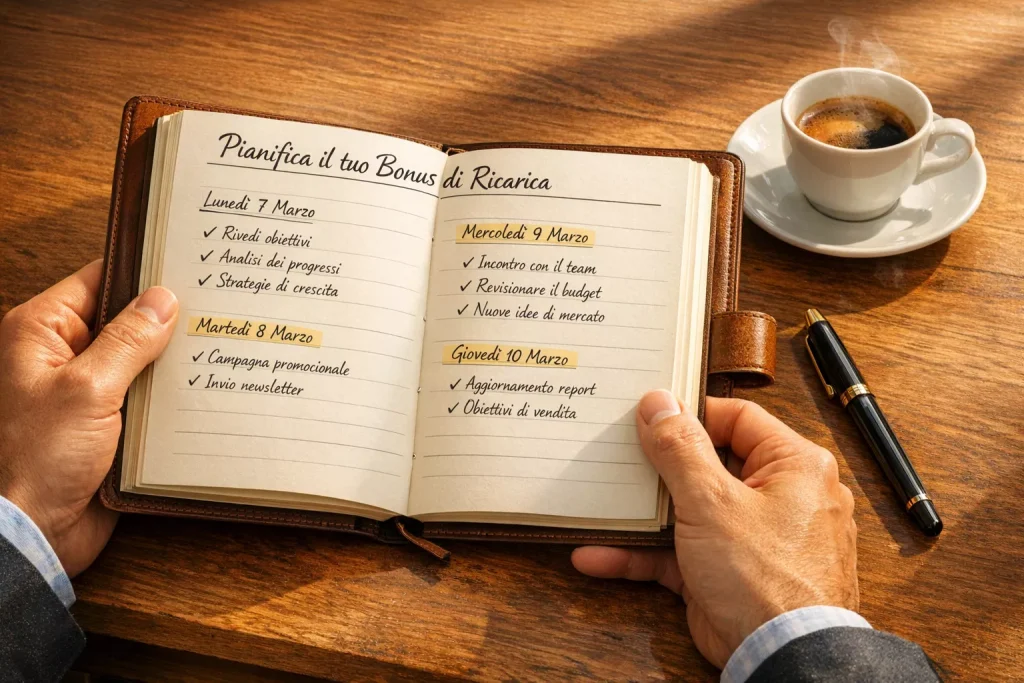 Pianifica il tuo Bonus di Ricarica
Lunedì 7 Marzo
✓ Rivedi obiettivi
✓ Analisi dei progressi
✓ Strategie di crescita
Martedì 8 Marzo
✓ Campagna promozionale
✓ Invio newsletter
Mercoledì 9 Marzo
✓ Incontro con il team
✓ Revisionare il budget
✓ Nuove idee di mercato
Giovedì 10 Marzo
✓ Aggiornamento report
✓ Obiettivi di vendita